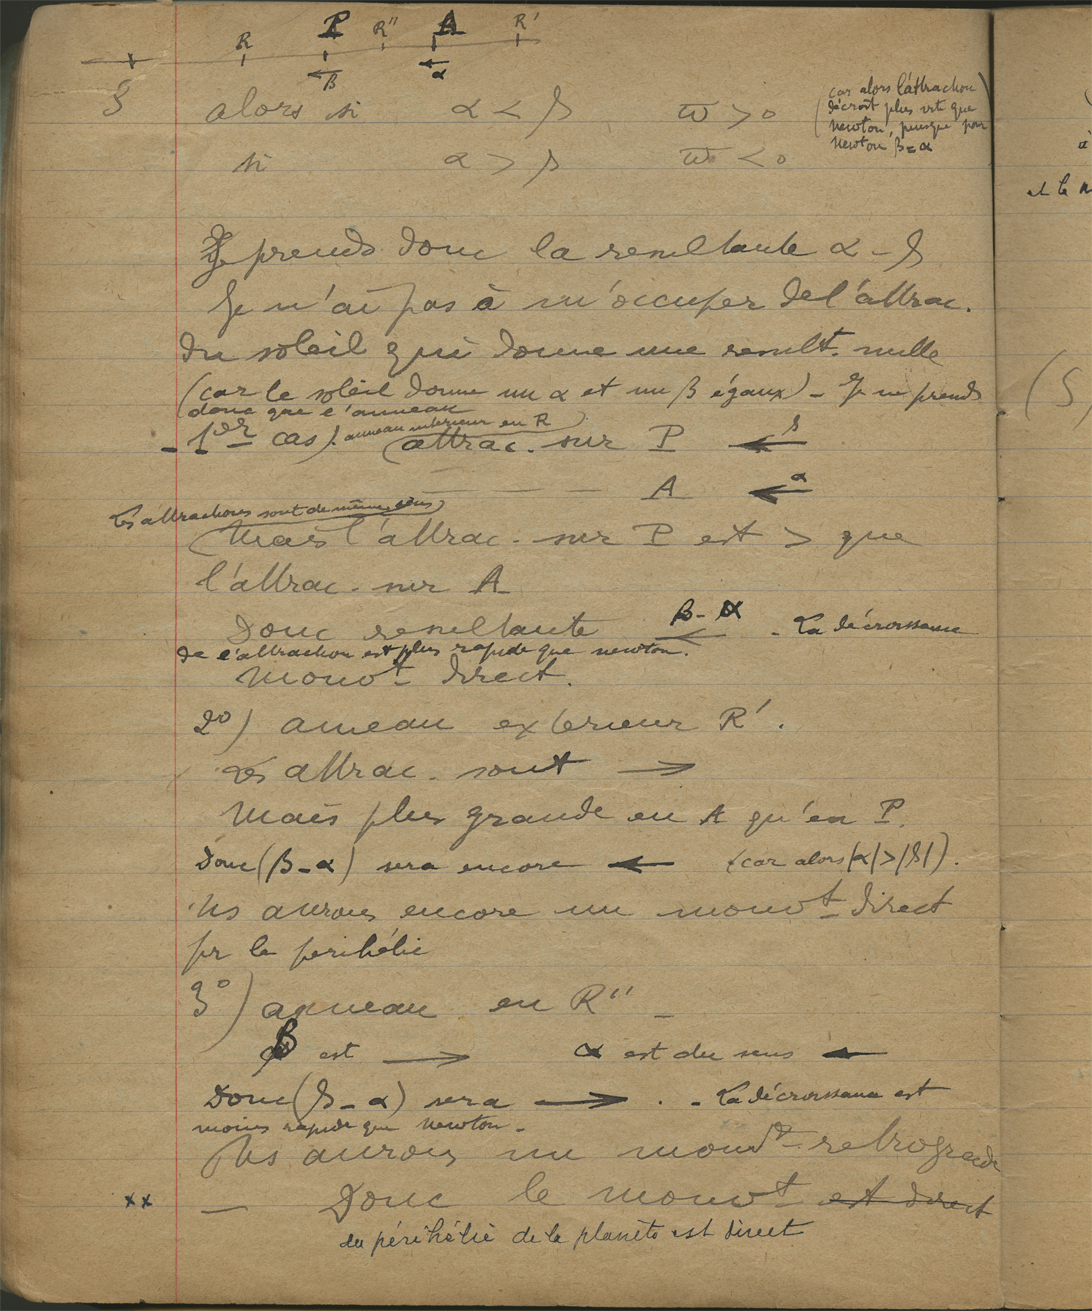 R P R'' A R'
S β α
alors si α < β ϖ > 0
(car alors l'attraction
décroît plus vite que
newton, puisque pour
newton β = α
si α > β ϖ < 0
Je prends donc la resultante α - β
Je n'ai pas à m'occuper de l'attrac.
du soleil qui donne une result. nulle
(car le soleil donne un α et un β égaux) - Je ne prends
donc que l'anneau
- 1er cas). anneau intérieur en R) attrac. sur P ← β
— — A ← α
Les attractions sont de même sens)
Mais l'attrac. sur P est > que
l'attrac. sur A
Donc resultante β - α ← . La décroissance
de l'attraction est plus rapide que newton.
mouvt direct.
2°) anneau extérieur R'.
Les attrac. sont →
Mais plus grande en A qu'en P.
Donc (β - α) sera encore ← (car alors |α| > |β|).
Ns aurons encore un mouvt direct
pr le perihélie
3°) anneau en R'' _
β est → α est du sens ←
Donc (β - α) sera → . - La décroissance est
moins rapide que newton -
Ns aurons un mouvt retrograde
xx — Donc le mouvt est direct
du périhélie de la planète est direct
et le
(S